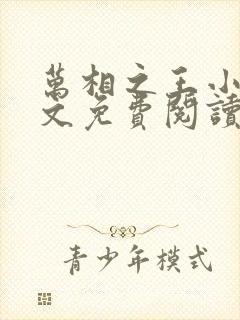 萬相之王小
文免費閱讀
青少年模式